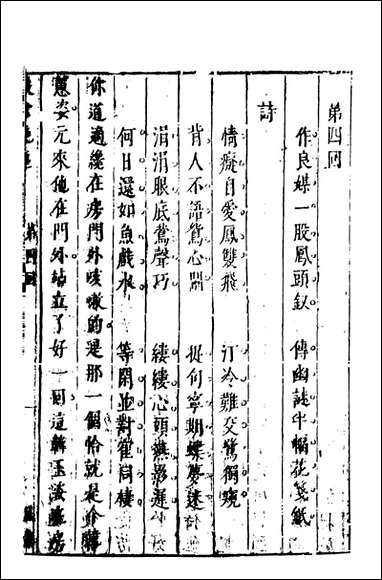 第四回
作良媒一股鳳頭釵　傳幽謎半幅花箋紙
詩
情癡自愛鳳雙飛　汀冷難交鷺獨窺
背人不語鴛心鬧　捉句寧期蝶夢迷
涓涓眼底鶯聲巧　縷縷心頭燕影遲
何日還如魚戲水　等閑並對隺同棲
你道適纔在房門外咳嗽的是那一個恰就是
蕙姿元來他在門外站立了好一回這韓玉
第四回